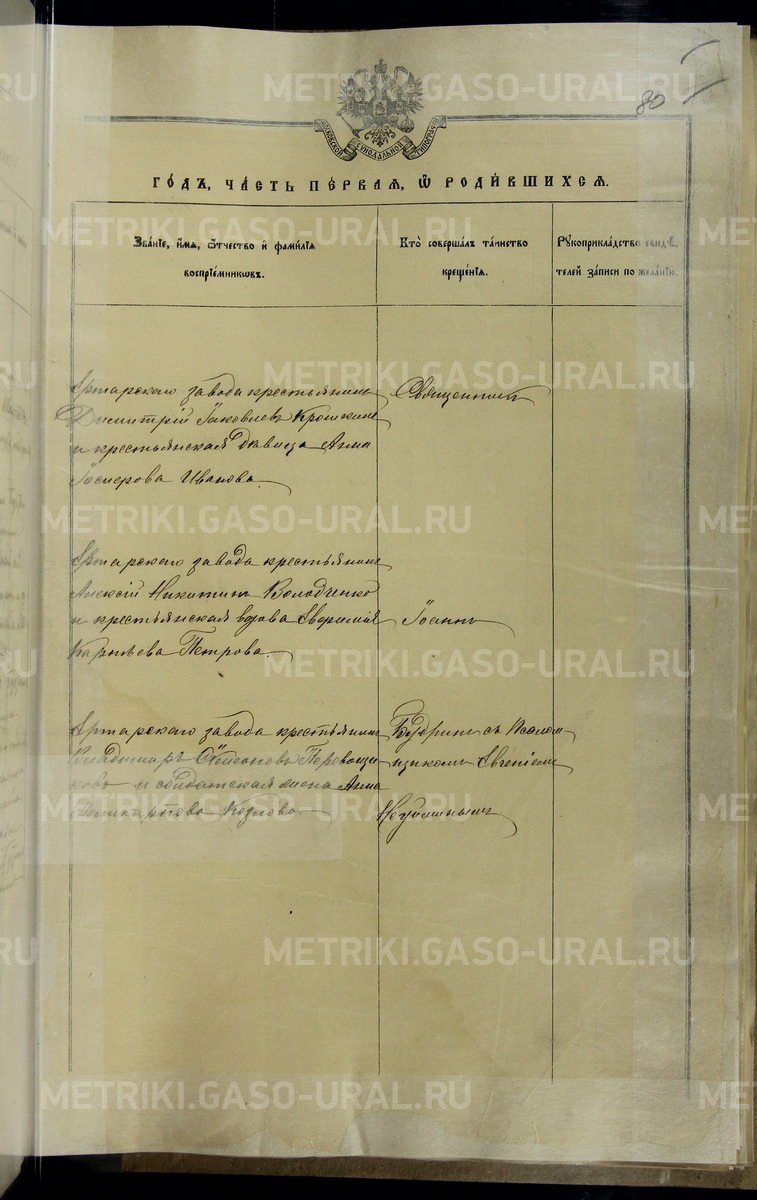 80
МОСКОВСКОЙ СѴНОДАЛЬНОЙ ТИПОГРАФІИ
ГО́ДЪ, ЧА́СТЬ ПЕ́РВАЯ, Ѿ РОДИ́ВШИХСЯ.
Зва́нїе, и́мѧ, ѻ́тчество и҆ фами́лїѧ
воспрїе́мникѡвъ.
Кто̀ соверша́лъ та́инство
креще́нїѧ.
Рꙋкоприкла́дство свидѣ́-
телей за́писи по жела́нїю.
Артинскаго завода крестьянинъ
Димитрій Іаковлевъ Крошкинъ
и крестьянская дѣвица Анна
Іосифова Иванова.
Священникъ
Артинскаго завода крестьянинъ
Алексій Никитинъ Володченко
и крестьянская вдова Евфимія
Петрова.
Іоаннъ
Артинскаго завода крестьянинъ
Владиміръ Симеоновъ Перевощи
ковъ и солдатская жена Анна
Поликарпова Козлова.
Бодринъ съ псалом
щикомъ Евгеніемъ
METRIKI.GASO-URAL.RU